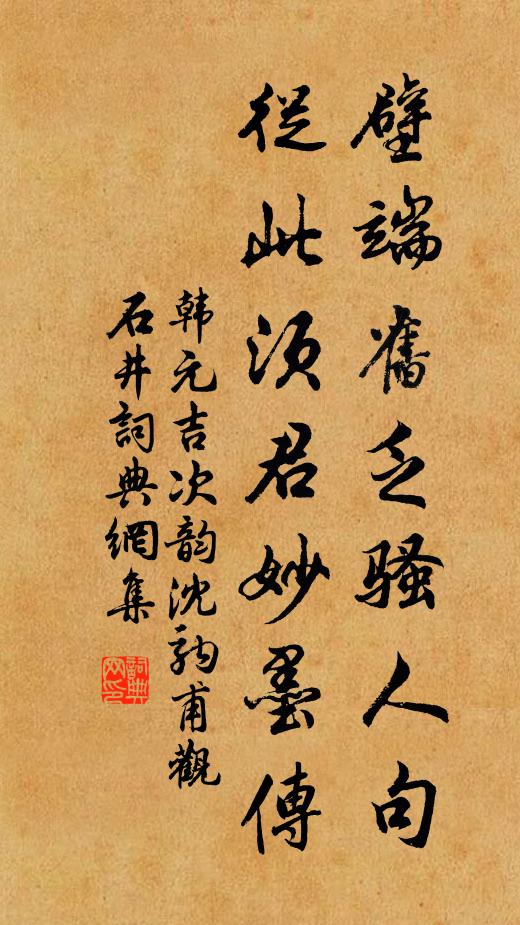 壁端舊乏騷人句
從此須君妙墨傳
韩元吉次韵沈驹甫觀
石井詞典網集
詞典网印